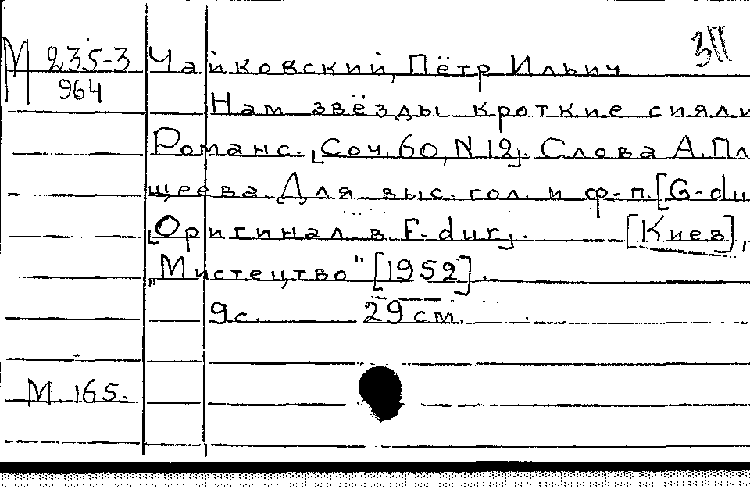 М 235-3 Чайковский, Пётр Ильич
964
Нам звёзды кроткие сияли
Романс. [Соч. 60, N 12]. Слова А. Пле
щеева. Для выс. гол. и ф-п. [G-du
[Оригинал в F-dur]. [Киев],
"Мистецтво" [1952].
9 с. 29 см.
М. 165.